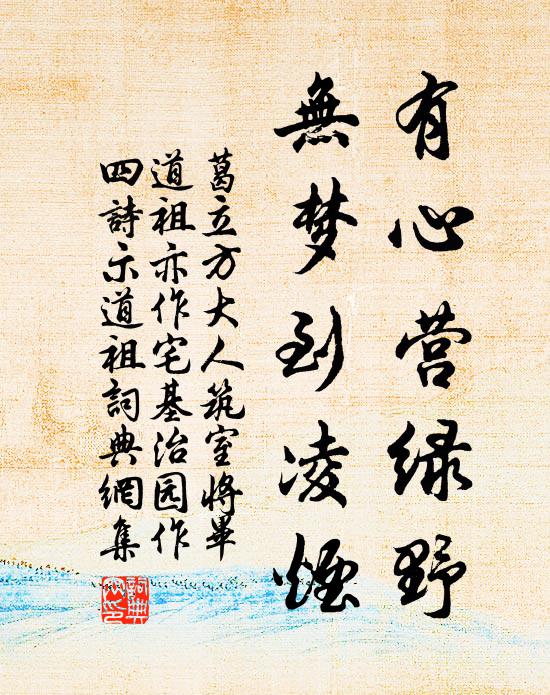 有心营绿野
無梦到凌煙
葛立方大人筑室將畢
道祖亦作宅基治园作
四詩示道祖詞典網集